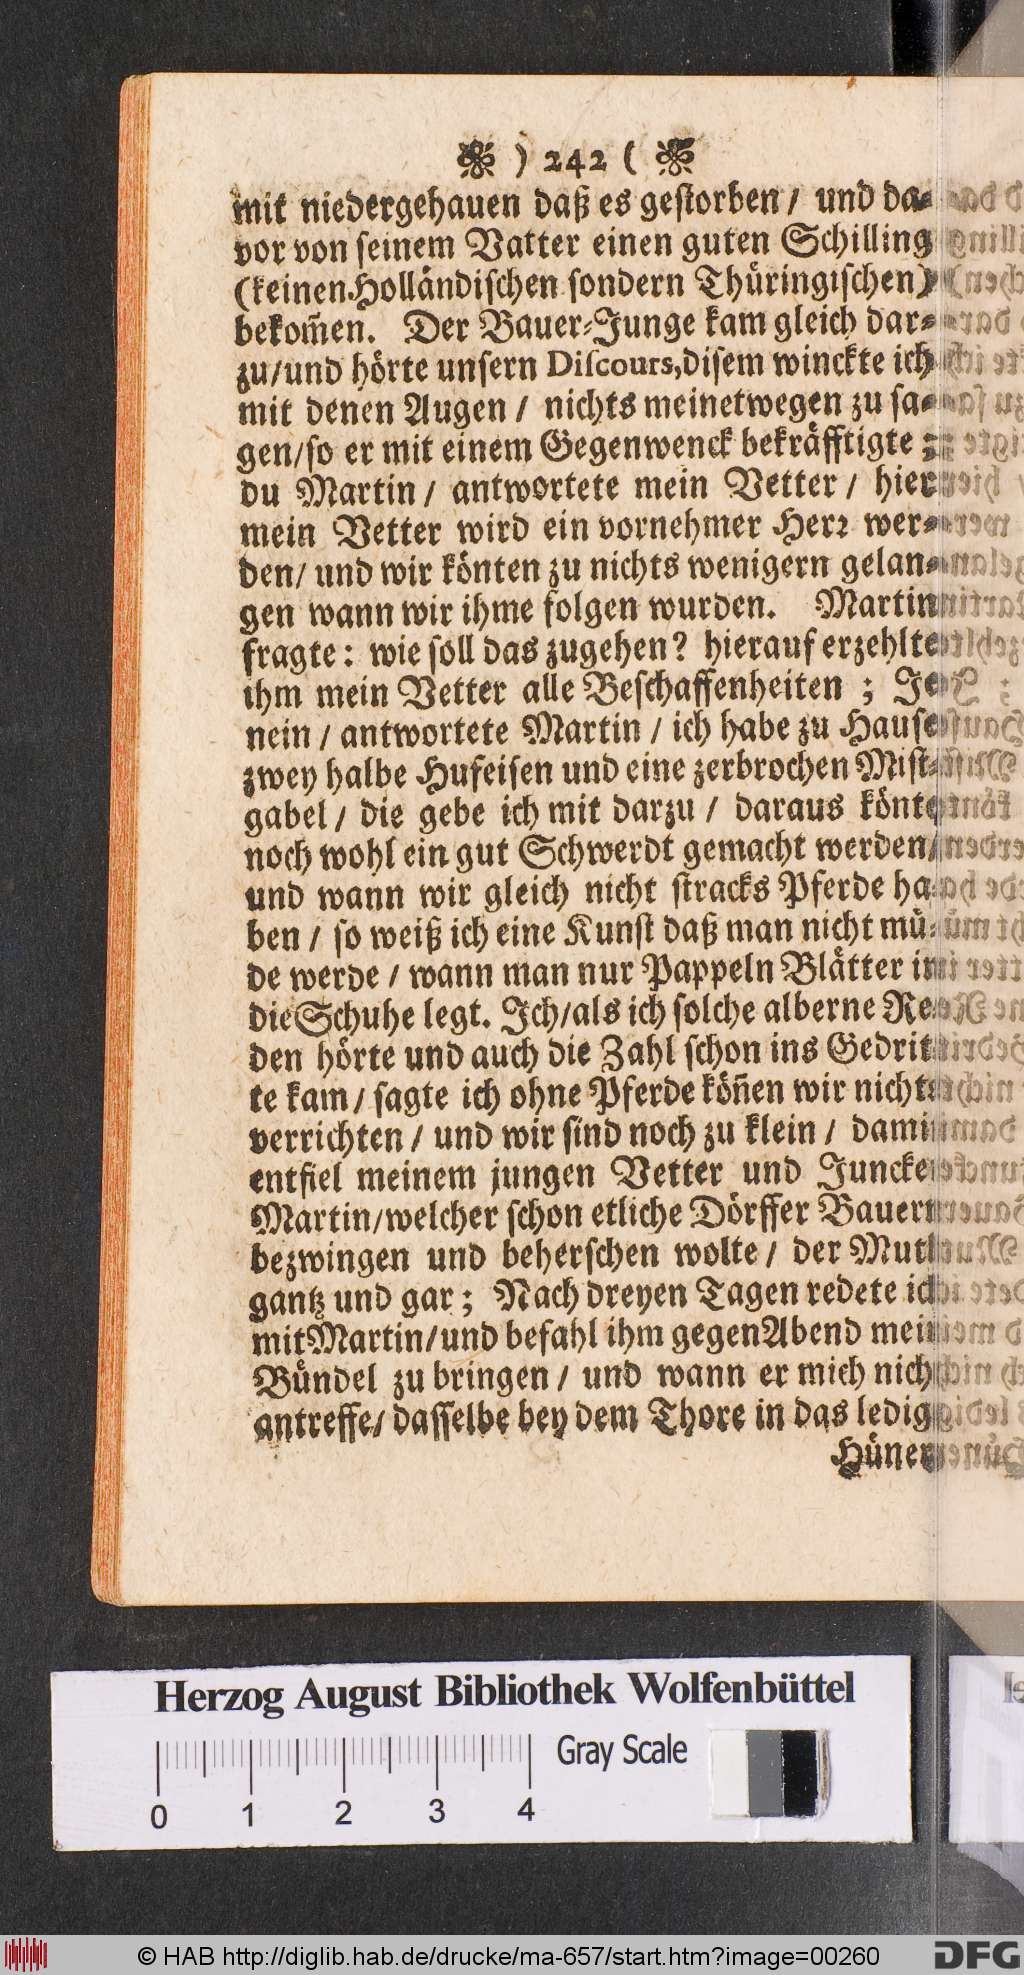 ) 242 (
mit niedergehauen daß es gestorben / und da-
vor von seinem Vatter einen guten Schilling
(keinen Holländischen sondern Thüringischen)
bekom̃en. Der Bauer-Junge kam gleich dar-
zu/und hörte unsern Discours,disem winckte ich
mit denen Augen / nichts meinetwegen zu sa-
gen/so er mit einem Gegenwenck bekräfftigte ;
du Martin / antwortete mein Vetter / hier
mein Vetter wird ein vornehmer Herr wer-
den/ und wir könten zu nichts wenigern gelan-
gen wann wir ihme folgen wurden. Martin
fragte: wie soll das zugehen? hierauf erzehlte
ihm mein Vetter alle Beschaffenheiten ; Je
nein / antwortete Martin / ich habe zu Hause
zwey halbe Hufeisen und eine zerbrochen Mist-
gabel / die gebe ich mit darzu / daraus könte
noch wohl ein gut Schwerdt gemacht werden/
und wann wir gleich nicht stracks Pferde ha-
ben / so weiß ich eine Kunst daß man nicht mü-
de werde / wann man nur Pappeln Blätter in
die Schuhe legt. Ich/als ich solche alberne Re-
den hörte und auch die Zahl schon ins Gedrit-
te kam / sagte ich ohne Pferde köñen wir nichts
verrichten / und wir sind noch zu klein / damit
entfiel meinem jungen Vetter und Juncker
Martin/welcher schon etliche Dörffer Bauern
bezwingen und beherschen wolte / der Muth
gantz und gar ; Nach dreyen Tagen redete ich
mit Martin/und befahl ihm gegen Abend mein
Bündel zu bringen / und wann er mich nicht
antreffe/ dasselbe bey dem Thore in das ledige
Hüner-
Herzog August Bibliothek Wolfenbüttel
Gray Scale
0 1 2 3 4
© HAB http://diglib.hab.de/drucke/ma-657/start.htm?image=00260
DFG